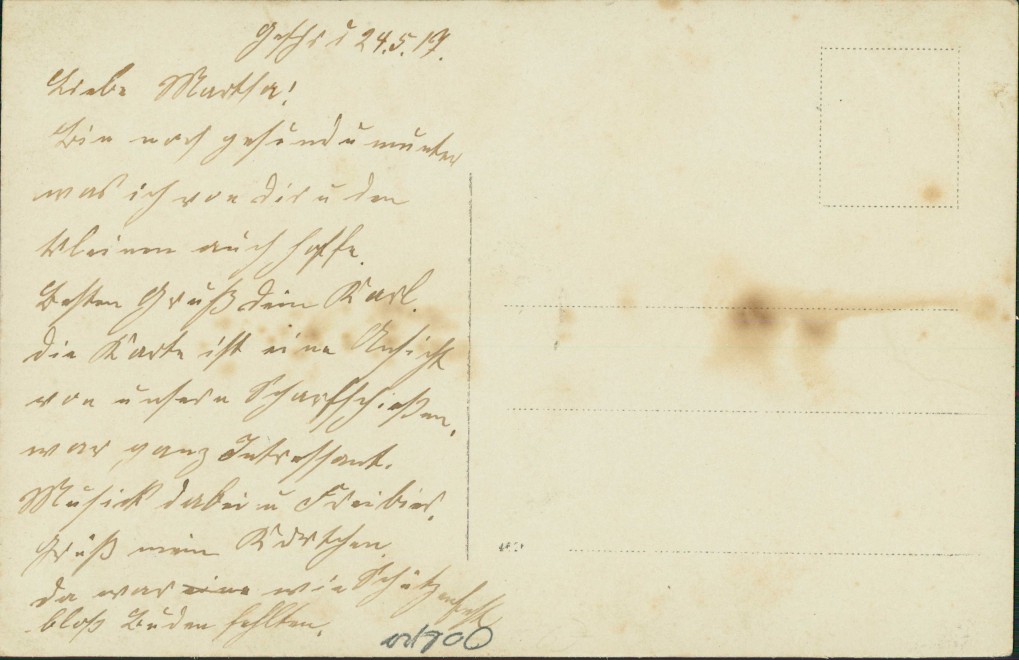 24.5.17.
Liebe Martha!
Bin noch gesund u munter
was ich von dir u den
Kleinen auch hoffe.
Besten Gruß dein Karl.
die Karte ist eine Ansicht
von unsern Scharfschießen,
war ganz Intressant.
Musick dabei u Freibier,
Grüß mein Kurtchen.
da war wie Schützenfest
bloß Buden fehlten.